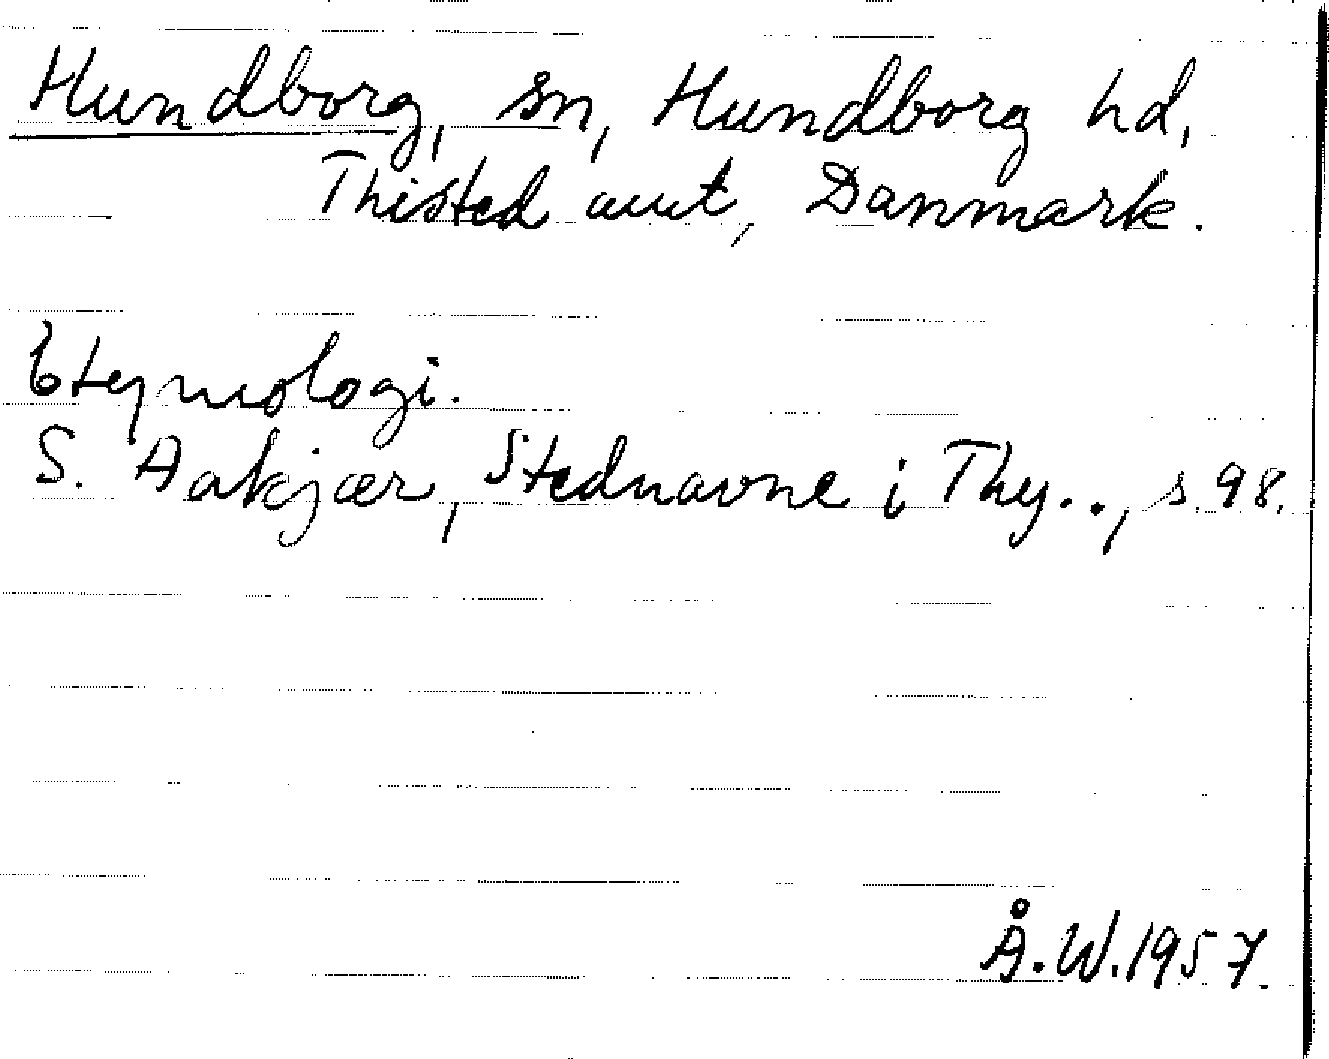 Hundborg, sn, Hundborg hd,
Thisted amt, Danmark.
Etymologi.
S. Aakjær, Stednavne i Thy.., s. 98.
Å.W. 1957.